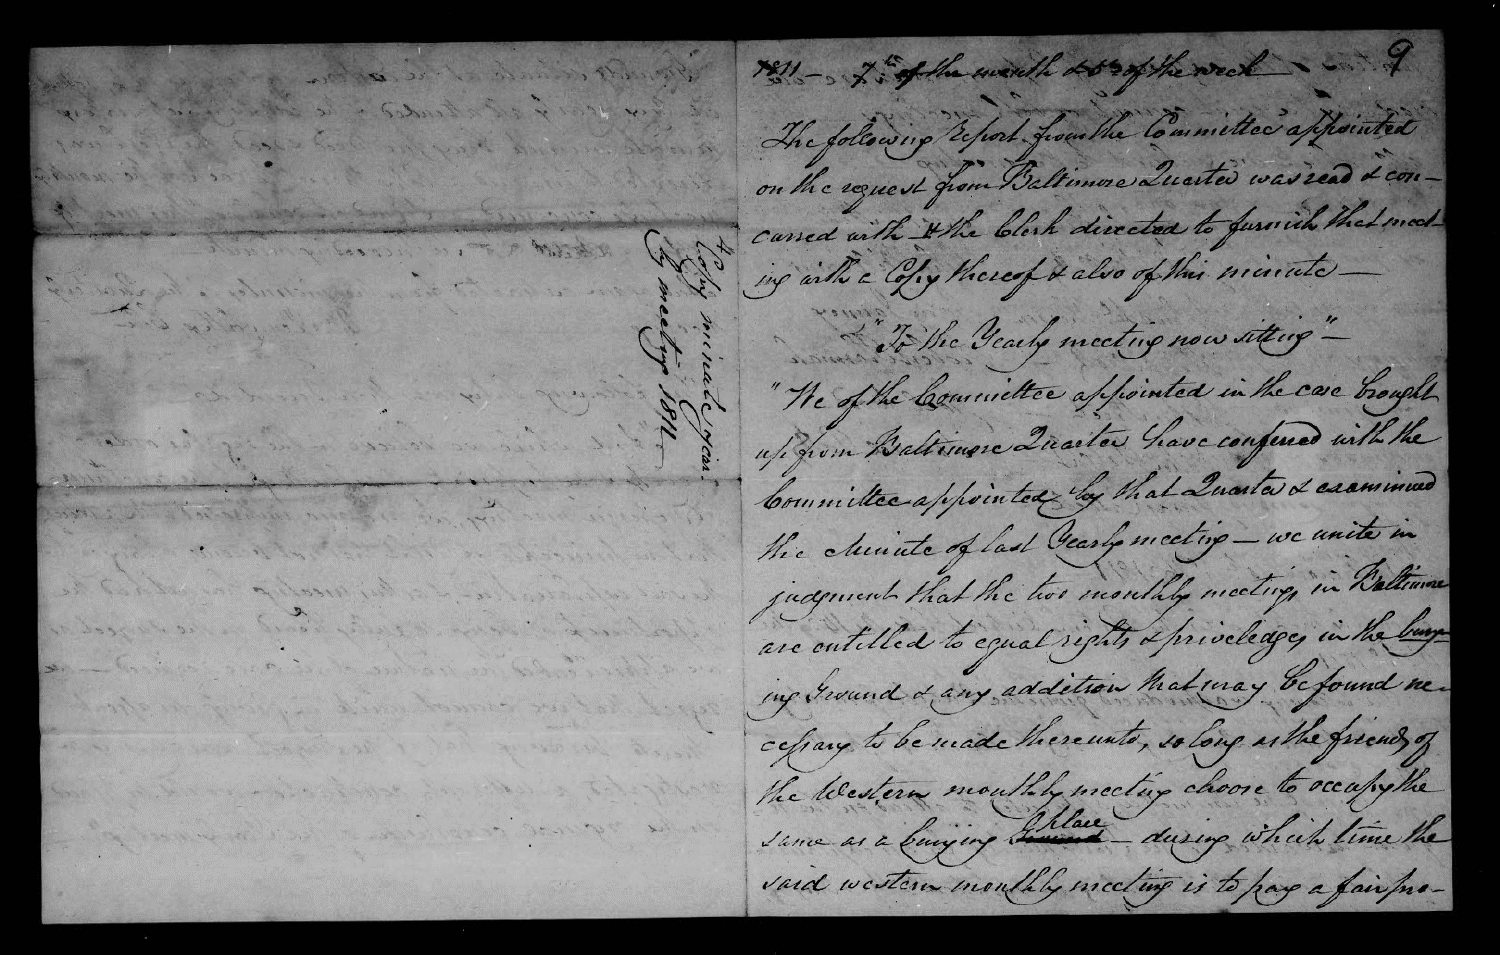 4
Copy minute year-
ly meeting 1811
9
1811 — 7th of the month & 5th of the week
The following Report from the Committee appointed
on the request from Baltimore Quarter was read & con-
curred with & the Clerk directed to furnish that meet-
ing with a Copy thereof & also of this minute —
"To the Yearly meeting now sitting" —
"We of the Committee appointed in the case brought
up from Baltimore Quarter have conferred with the
Committee appointed by that Quarter & examinined
the Minute of last Yearly meeting — we unite in
judgment that the two monthly meetings in Baltimore
are entitled to equal rights & priveledges in the bury-
ing Ground & any addition that may be found ne-
cessary to be made thereunto, so long as the friends of
the Western monthly meeting choose to occupy the
same as a burying Ground place — during which time the
said western monthly meeting is to pay a fair pro-